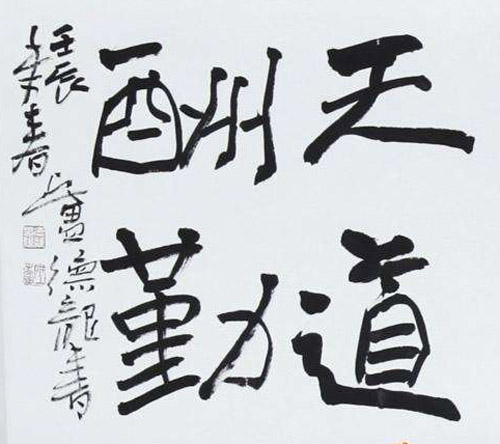 天道
酬勤
壬辰
春盧德龍書